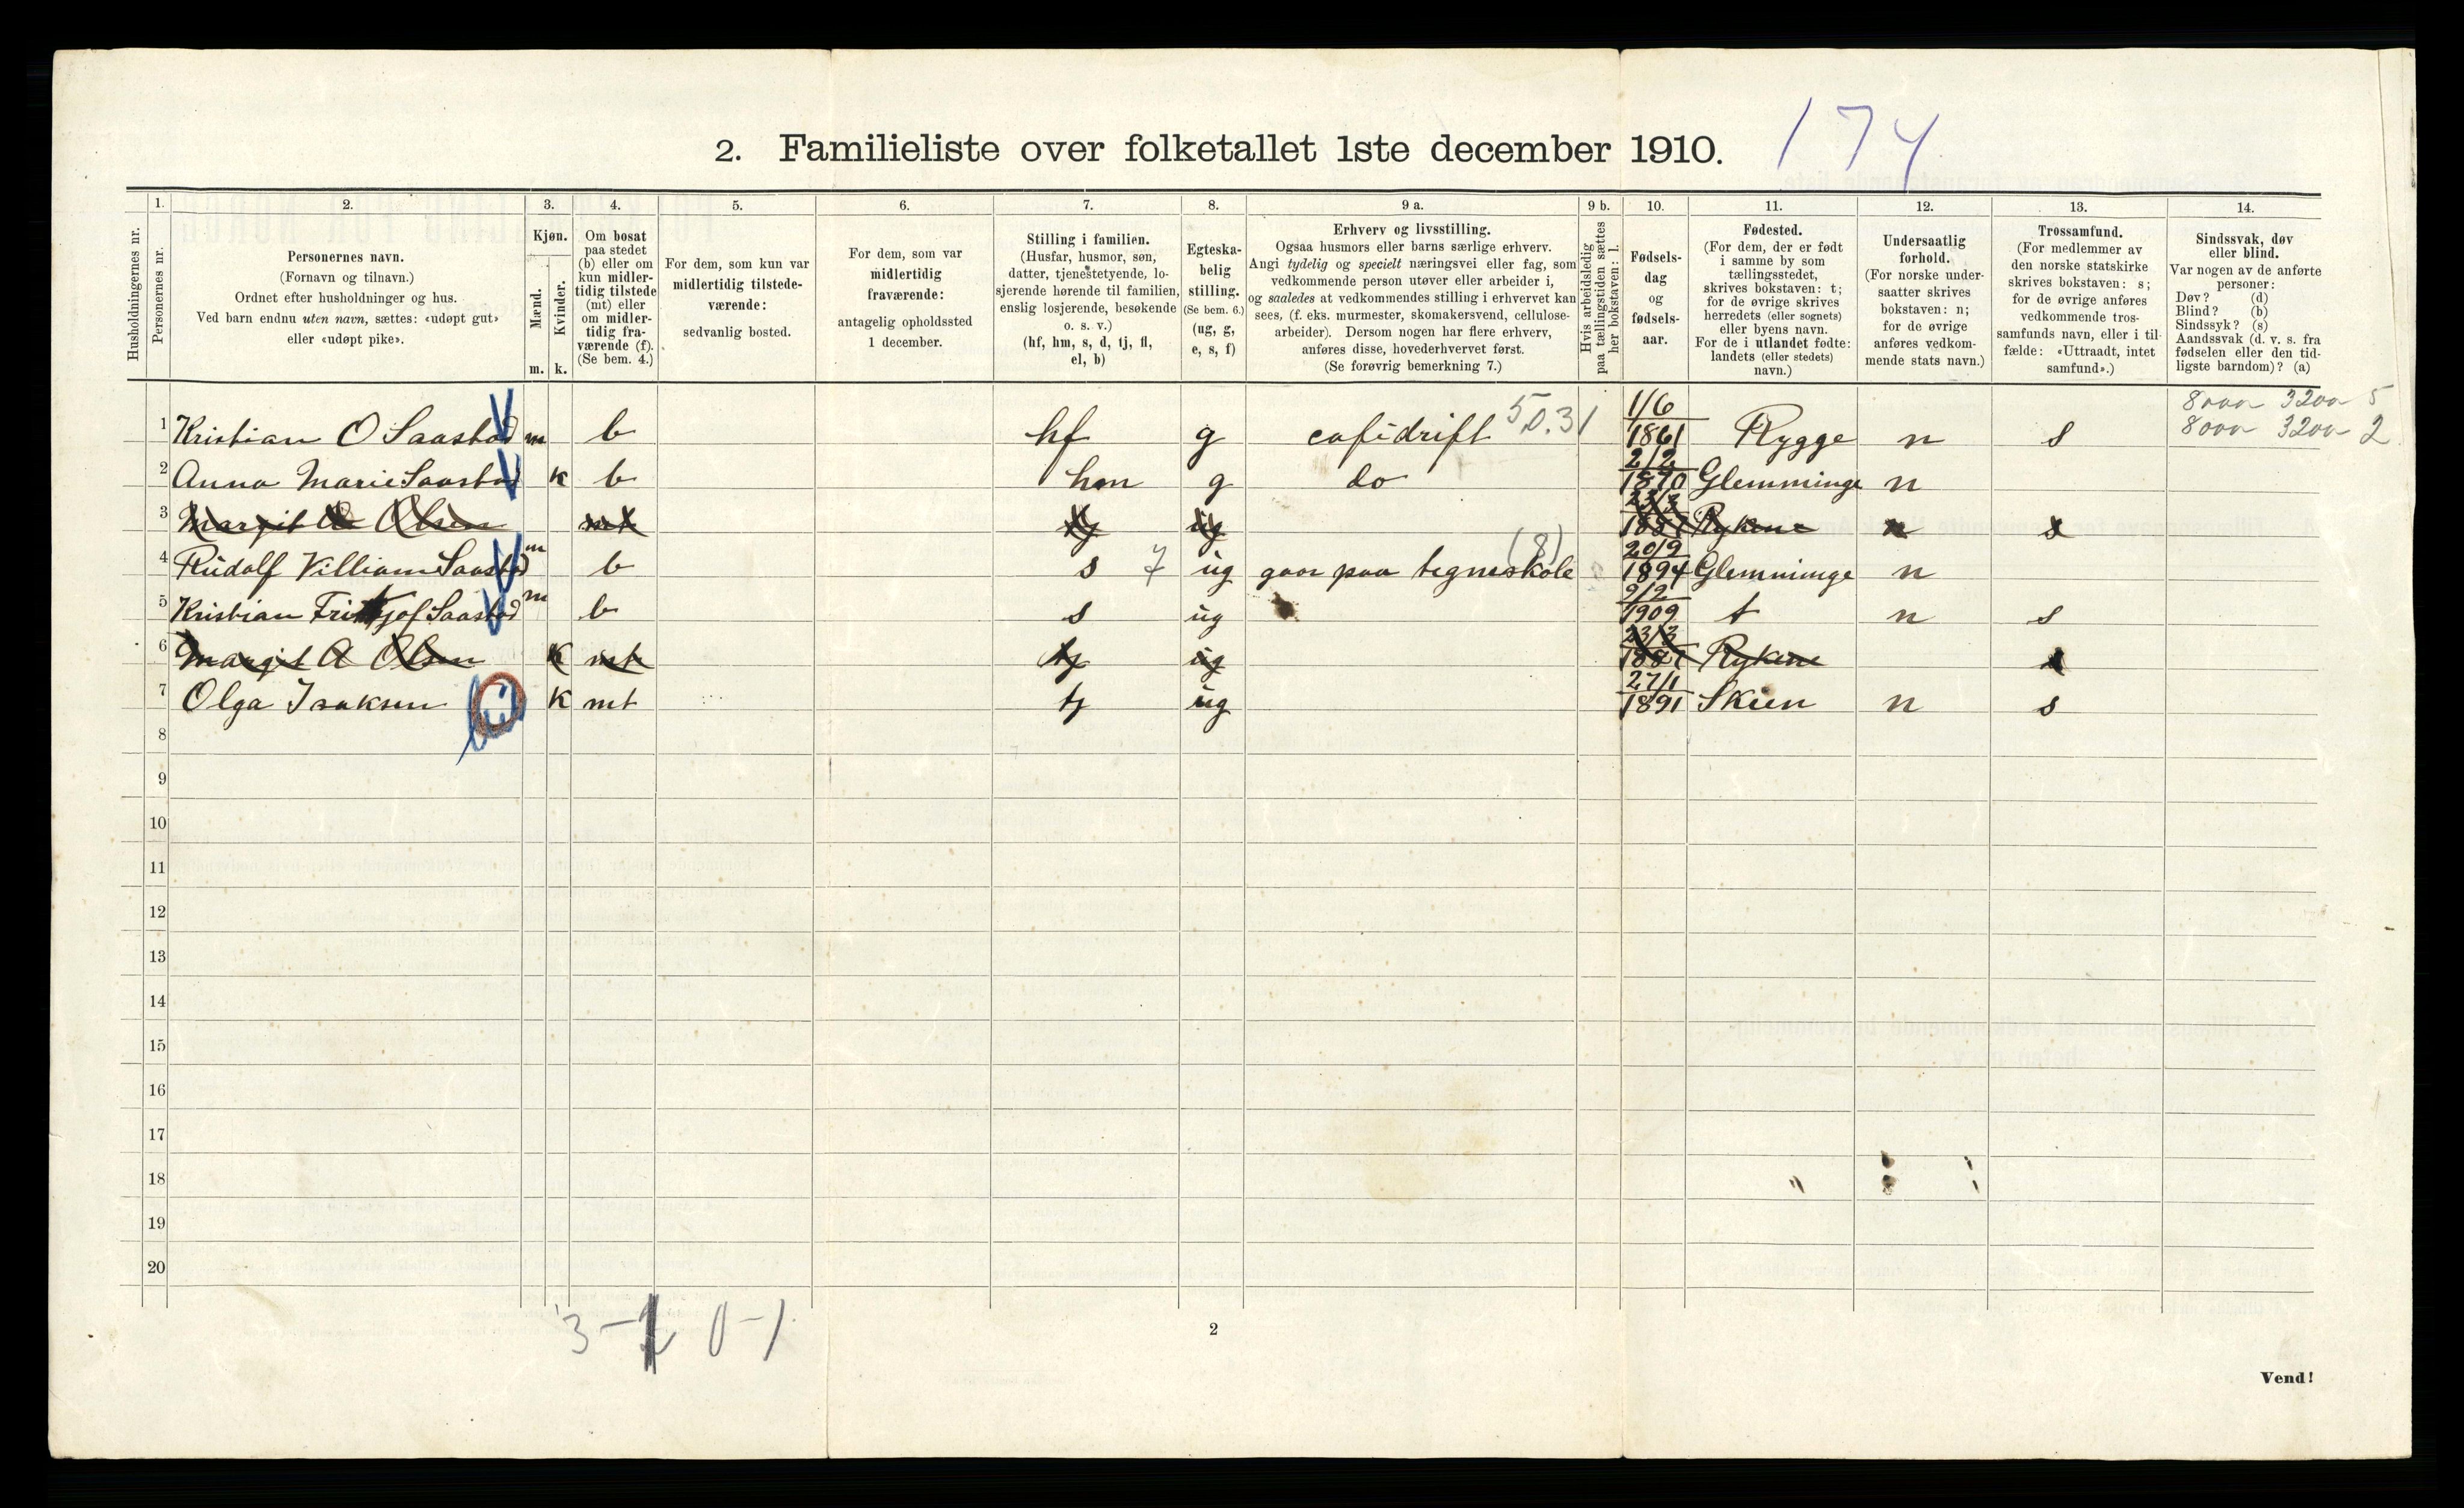 2. Familieliste over folketallet 1ste december 1910. 174
Husholdningernes nr.
1. Personernes nr.
2. Personernes navn.
(Fornavn og tilnavn.)
Ordnet efter husholdninger og hus.
Ved barn endnu uten navn, sættes: «udøpt gut»
eller «udøpt pike».
3. Kjøn.
Mænd. Kvinder.
m. k.
4. Om bosat
paa stedet
(b) eller om
kun midler-
tidig tilstede
(mt) eller
om midler-
tidig fra-
værende (f).
(Se bem. 4.)
5. For dem, som kun var
midlertidig tilstede-
værende:
sedvanlig bosted.
6. For dem, som var
midlertidig
fraværende:
antagelig opholdssted
1 december.
7. Stilling i familien.
(Husfar, husmor, søn,
datter, tjenestetyende, lo-
sjerende hørende til familien,
enslig losjerende, besøkende
o. s. v.)
(hf, hm, s, d, tj, fl,
el, b)
8. Egteska-
belig
stilling.
(Se bem. 6.)
(ug, g,
e, s, f)
9 a. Erhverv og livsstilling.
Ogsaa husmors eller barns særlige erhverv.
Angi tydelig og specielt næringsvei eller fag, som
vedkommende person utøver eller arbeider i,
og saaledes at vedkommendes stilling i erhvervet kan
sees, (f. eks. murmester, skomakersvend, cellulose-
arbeider). Dersom nogen har flere erhverv,
anføres disse, hovederhvervet først.
(Se forøvrig bemerkning 7.)
9 b. Hvis arbeidsledig
paa tællingstiden sættes
her bokstaven: l.
10. Fødsels-
dag
og
fødsels-
aar.
11. Fødested.
(For dem, der er født
i samme by som
tællingsstedet,
skrives bokstaven: t;
for de øvrige skrives
herredets (eller sognets)
eller byens navn.
For de i utlandet fødte:
landets (eller stedets)
navn.)
12. Undersaatlig
forhold.
(For norske under-
saatter skrives
bokstaven: n;
for de øvrige
anføres vedkom-
mende stats navn.)
13. Trossamfund.
(For medlemmer av
den norske statskirke
skrives bokstaven: s;
for de øvrige anføres
vedkommende tros-
samfunds navn, eller i til-
fælde: «Uttraadt, intet
samfund».)
14. Sindssvak, døv
eller blind.
Var nogen av de anførte
personer:
Døv? (d)
Blind? (b)
Sindssyk? (s)
Aandssvak (d. v. s. fra
fødselen eller den tid-
ligste barndom)? (a)
1 Kristian O Saastad m b hf g cafédrift 50.31 1/6 1861 Rygge n s
2 Anna Marie Saastad k b hm g do 2/2 1870 Glemminge n
3 Margit A Olsen mt tj ug 23/3 1887 Rykene n s
4 Rudolf Villiam Saastad m b s 7 ug gaar paa tegneskole (8) 20/9 1894 Glemminge n
5 Kristian Fritjof Saastad m b s ug 9/2 1909 t n s
6 Margit A Olsen k mt tj ug 23/3 1887 Rykene s
7 Olga Isaksen k mt tj ug 27/1 1891 Skien n s
8
9
10
11
12
13
14
15
16
17
18
19
20
3-1 0-1
2
Vend!